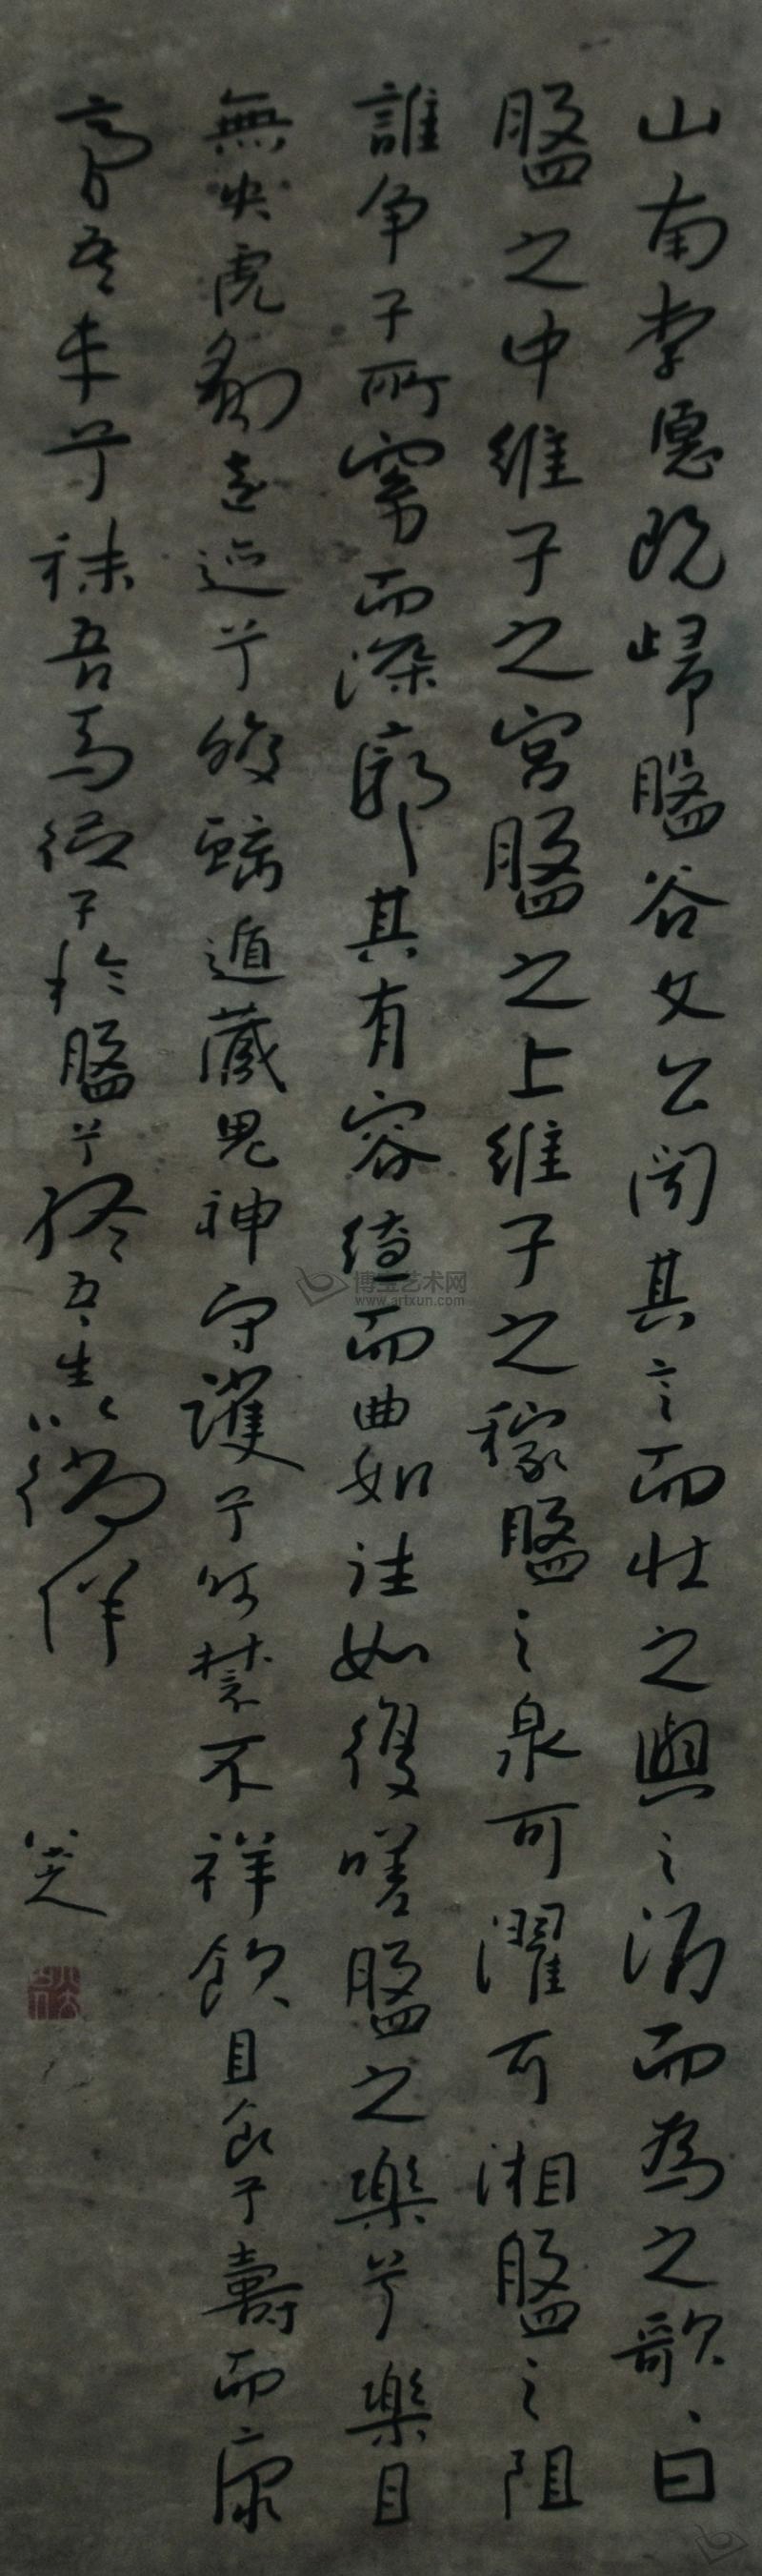 山南李愿既歸盤谷文公聞其言而壯之與之酒而為之歌曰
盤之中維子之宮盤之上維子之稼盤之泉可濯可湘盤之阻
誰爭子所窈而深廓其有容繚而曲如往如復嗟盤之樂兮樂且
無央虎豹遠迹兮蛟螭遁藏鬼神守護兮呵禁不祥飲且食兮壽而康
膏吾車兮秣吾馬從子於盤兮終吾生以徜徉
八大山人
博宝艺术网
www.artxun.com